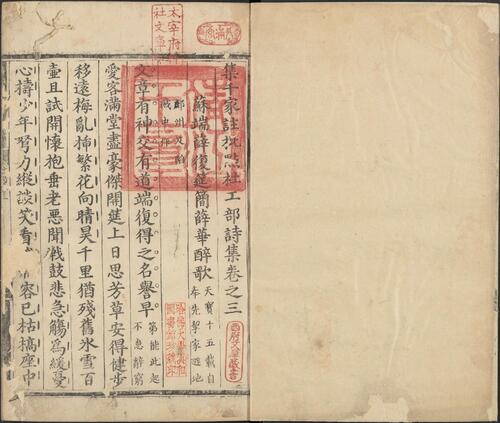 集千家註批點杜工部詩集卷之三
蘇端薛復筵簡薛華醉歌
天寶十五載自
奉先挈家避地
鄜州
文章有神交有道端復得之名譽早
第能此起
不怠辭窮
愛客滿堂盡豪傑開筵上日思芳草安得健步
移遠梅亂插繁花向晴昊千里猶殘舊氷雪百
壺且試開懷抱垂老惡聞戰鼓悲急觴為緩憂
心擣少年努力縱談笑看容已枯槁座中
太宰府
社文
哈佛大學漢和
圖書館珍藏印